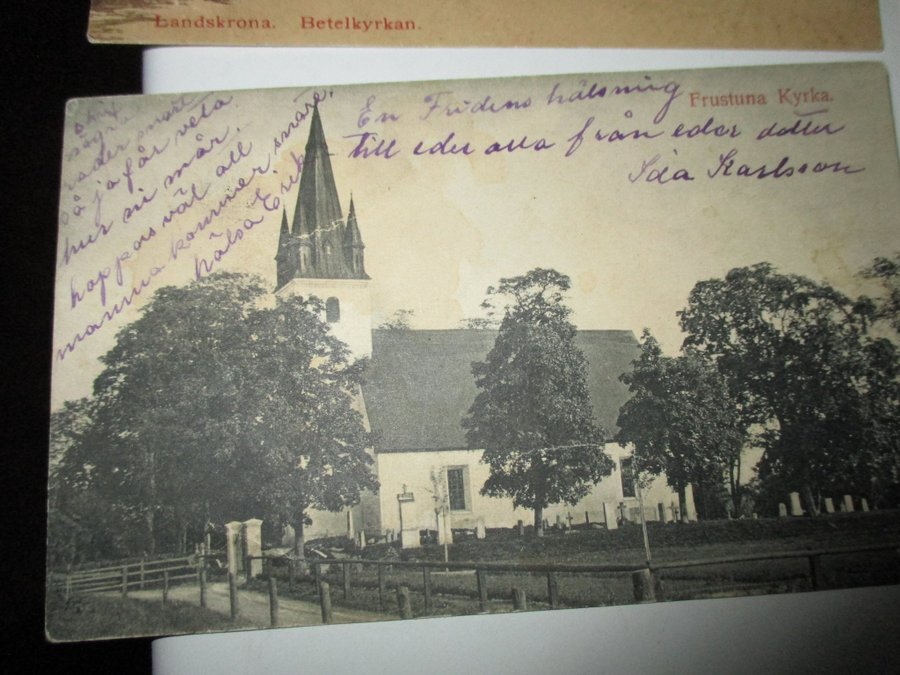 Landskrona. Betelkyrkan.
Frustuna Kyrka.
En Fridens hälsning
till eder alla från eder dotter
Ida Karlsson
skrif
några
rader snart
så ja får veta
hur ni mår.
hoppas väl att
mamma kommer snart.
hälsa Erik